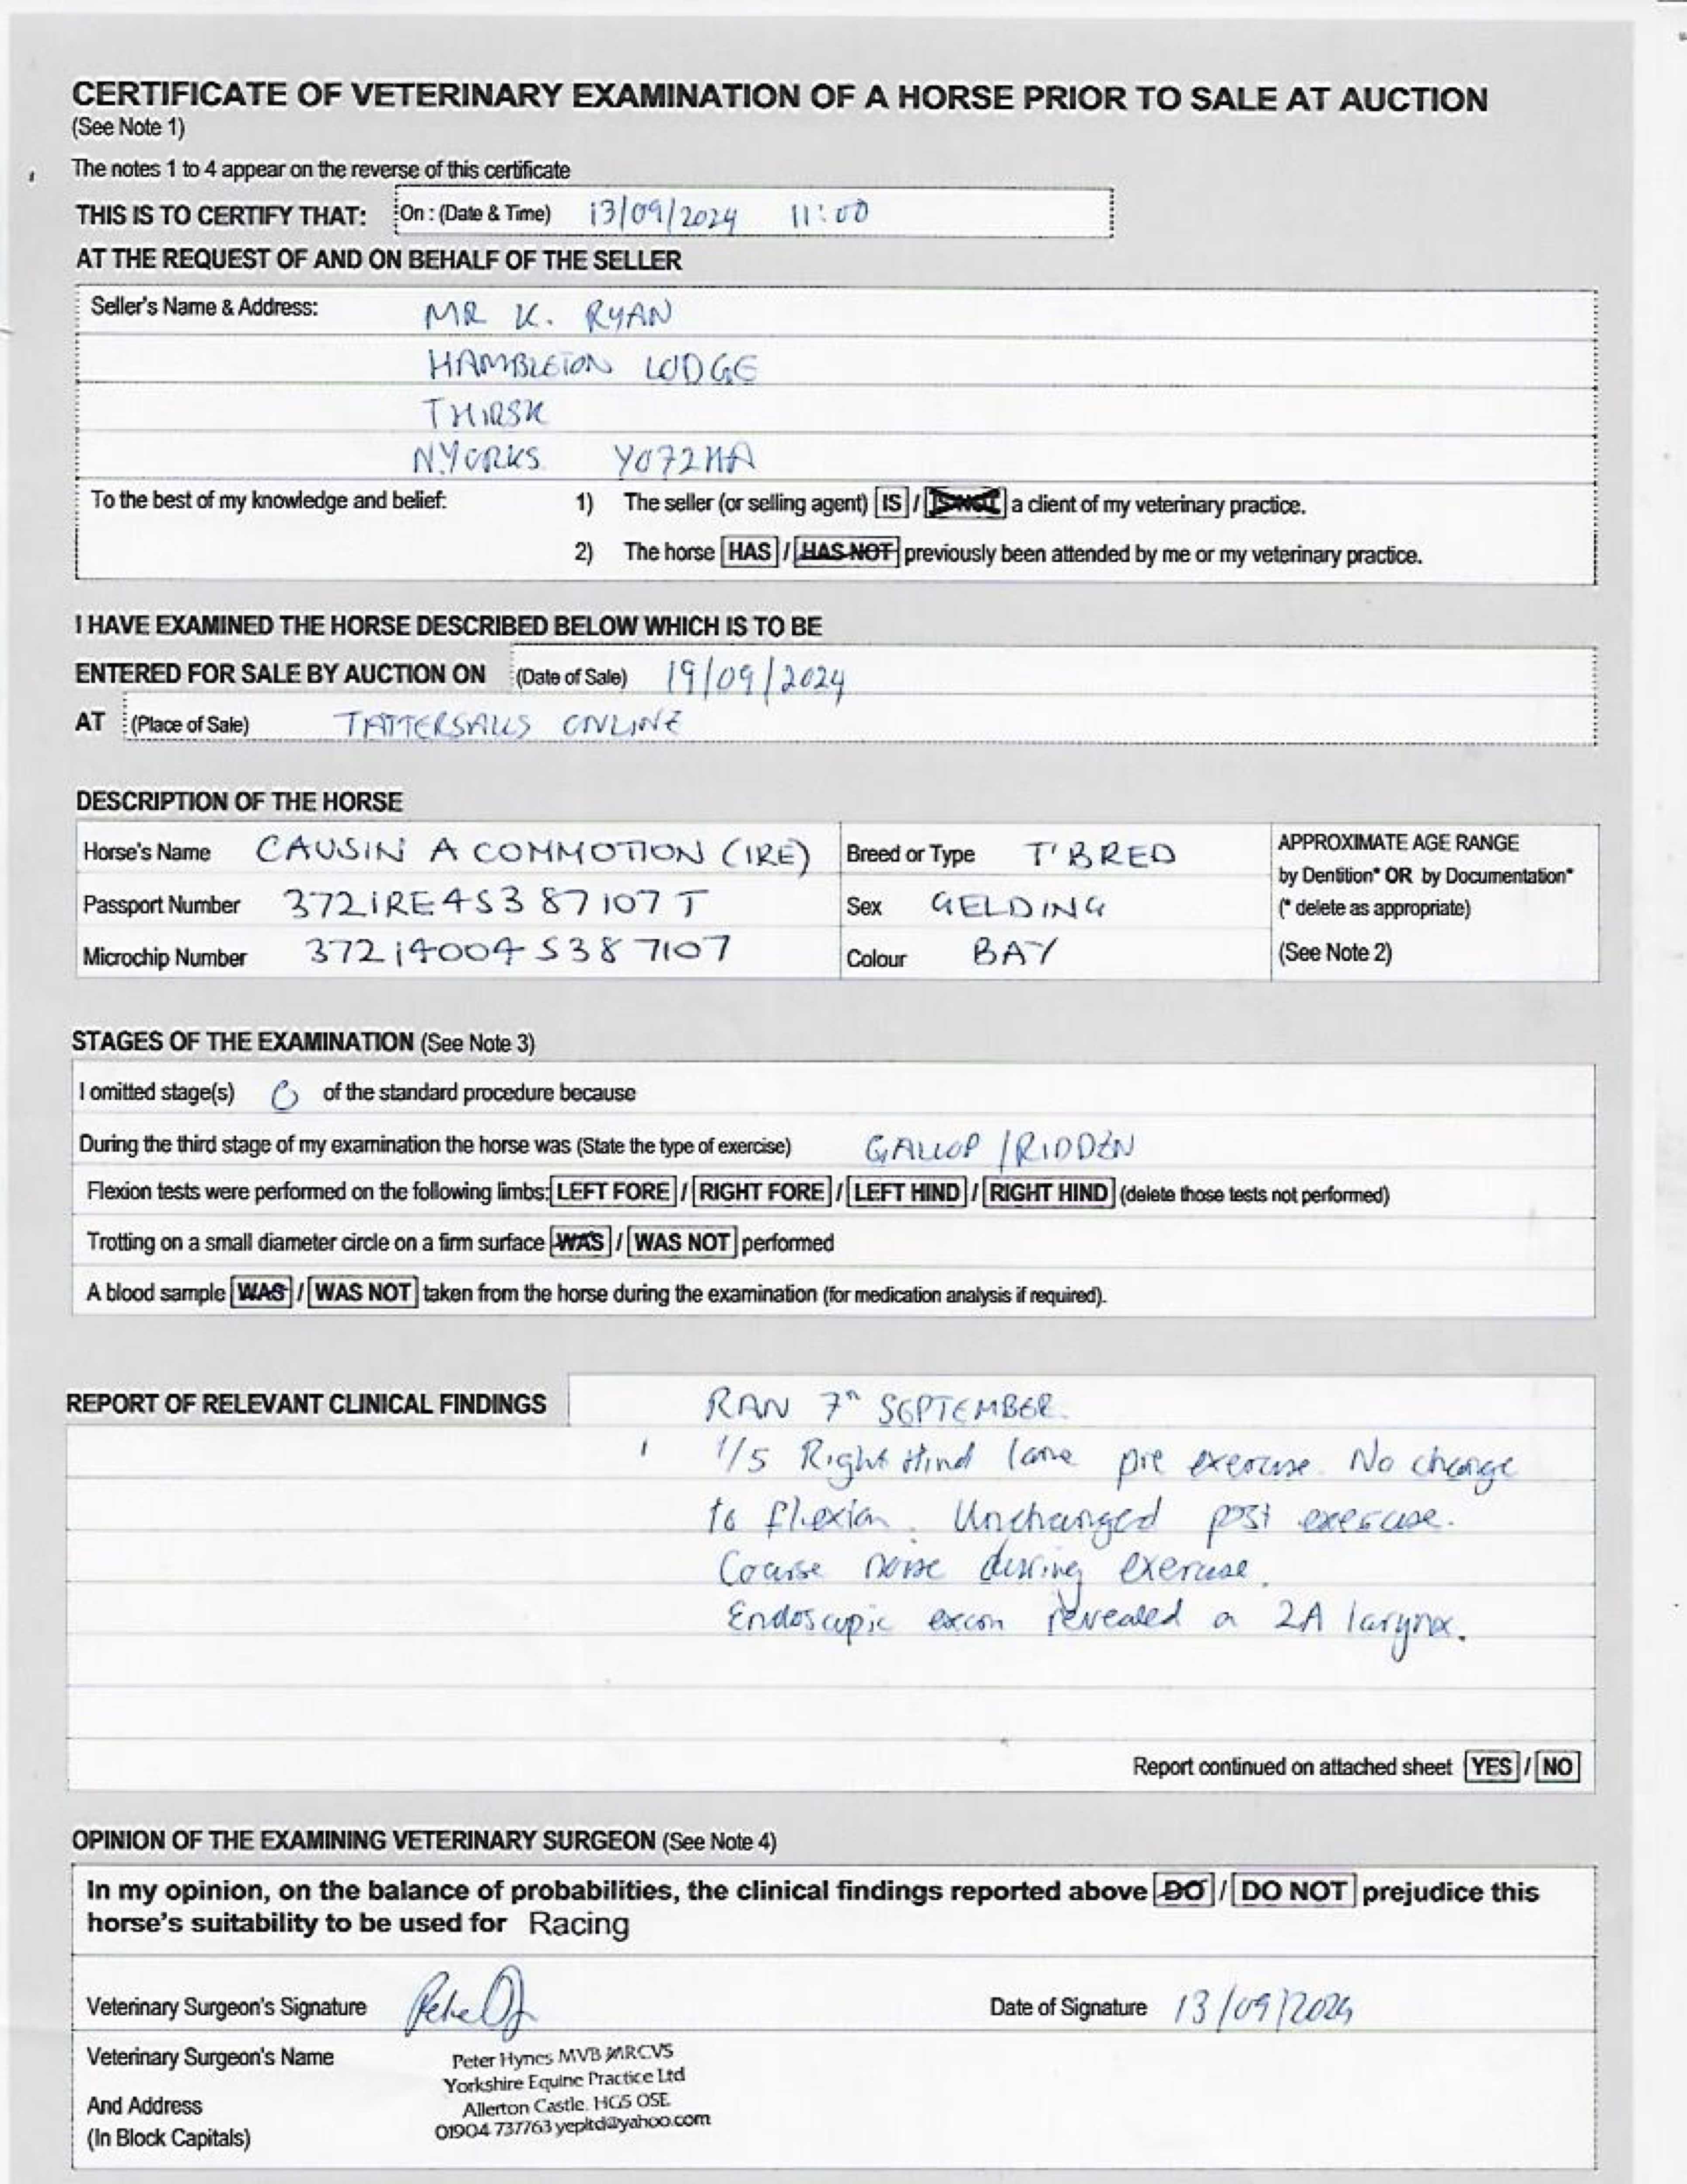 CERTIFICATE OF VETERINARY EXAMINATION OF A HORSE PRIOR TO SALE AT AUCTION
(See Note 1)
The notes 1 to 4 appear on the reverse of this certificate
THIS IS TO CERTIFY THAT: On : (Date & Time) 13/09/2024 11:00
AT THE REQUEST OF AND ON BEHALF OF THE SELLER
Seller's Name & Address: MR K. RYAN
HAMBLETON LODGE
THIRSK
N.YORKS YO72HA
To the best of my knowledge and belief: 1) The seller (or selling agent) IS / IS NOT a client of my veterinary practice.
2) The horse HAS / HAS NOT previously been attended by me or my veterinary practice.
I HAVE EXAMINED THE HORSE DESCRIBED BELOW WHICH IS TO BE
ENTERED FOR SALE BY AUCTION ON (Date of Sale) 19/09/2024
AT (Place of Sale) TATTERSALLS ONLINE
DESCRIPTION OF THE HORSE
Horse's Name CAUSIN A COMMOTION (IRE) Breed or Type T'BRED APPROXIMATE AGE RANGE
by Dentition* OR by Documentation*
Passport Number 372IRE45387107T Sex GELDING (* delete as appropriate)
Microchip Number 372140045387107 Colour BAY (See Note 2)
STAGES OF THE EXAMINATION (See Note 3)
I omitted stage(s) 0 of the standard procedure because
During the third stage of my examination the horse was (State the type of exercise) GALLOP / RIDDEN
Flexion tests were performed on the following limbs: LEFT FORE / RIGHT FORE / LEFT HIND / RIGHT HIND (delete those tests not performed)
Trotting on a small diameter circle on a firm surface WAS / WAS NOT performed
A blood sample WAS / WAS NOT taken from the horse during the examination (for medication analysis if required).
REPORT OF RELEVANT CLINICAL FINDINGS RAN 7th SEPTEMBER.
1/5 Right Hind lame pre exercise. No change
to flexion. Unchanged post exercise.
Coarse noise during exercise.
Endoscopic exam revealed a 2A larynx.
Report continued on attached sheet YES / NO
OPINION OF THE EXAMINING VETERINARY SURGEON (See Note 4)
In my opinion, on the balance of probabilities, the clinical findings reported above DO / DO NOT prejudice this
horse's suitability to be used for Racing
Veterinary Surgeon's Signature Date of Signature 13/09/2024
Veterinary Surgeon's Name Peter Hynes MVB MRCVS
Yorkshire Equine Practice Ltd
And Address Allerton Castle. HG5 0SE
(In Block Capitals) 01904 737763 yepltd@yahoo.com